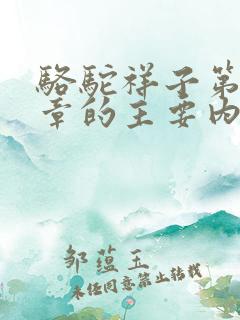 骆驼祥子第
章的主要内
邹蕴玉
未经同意禁止转载